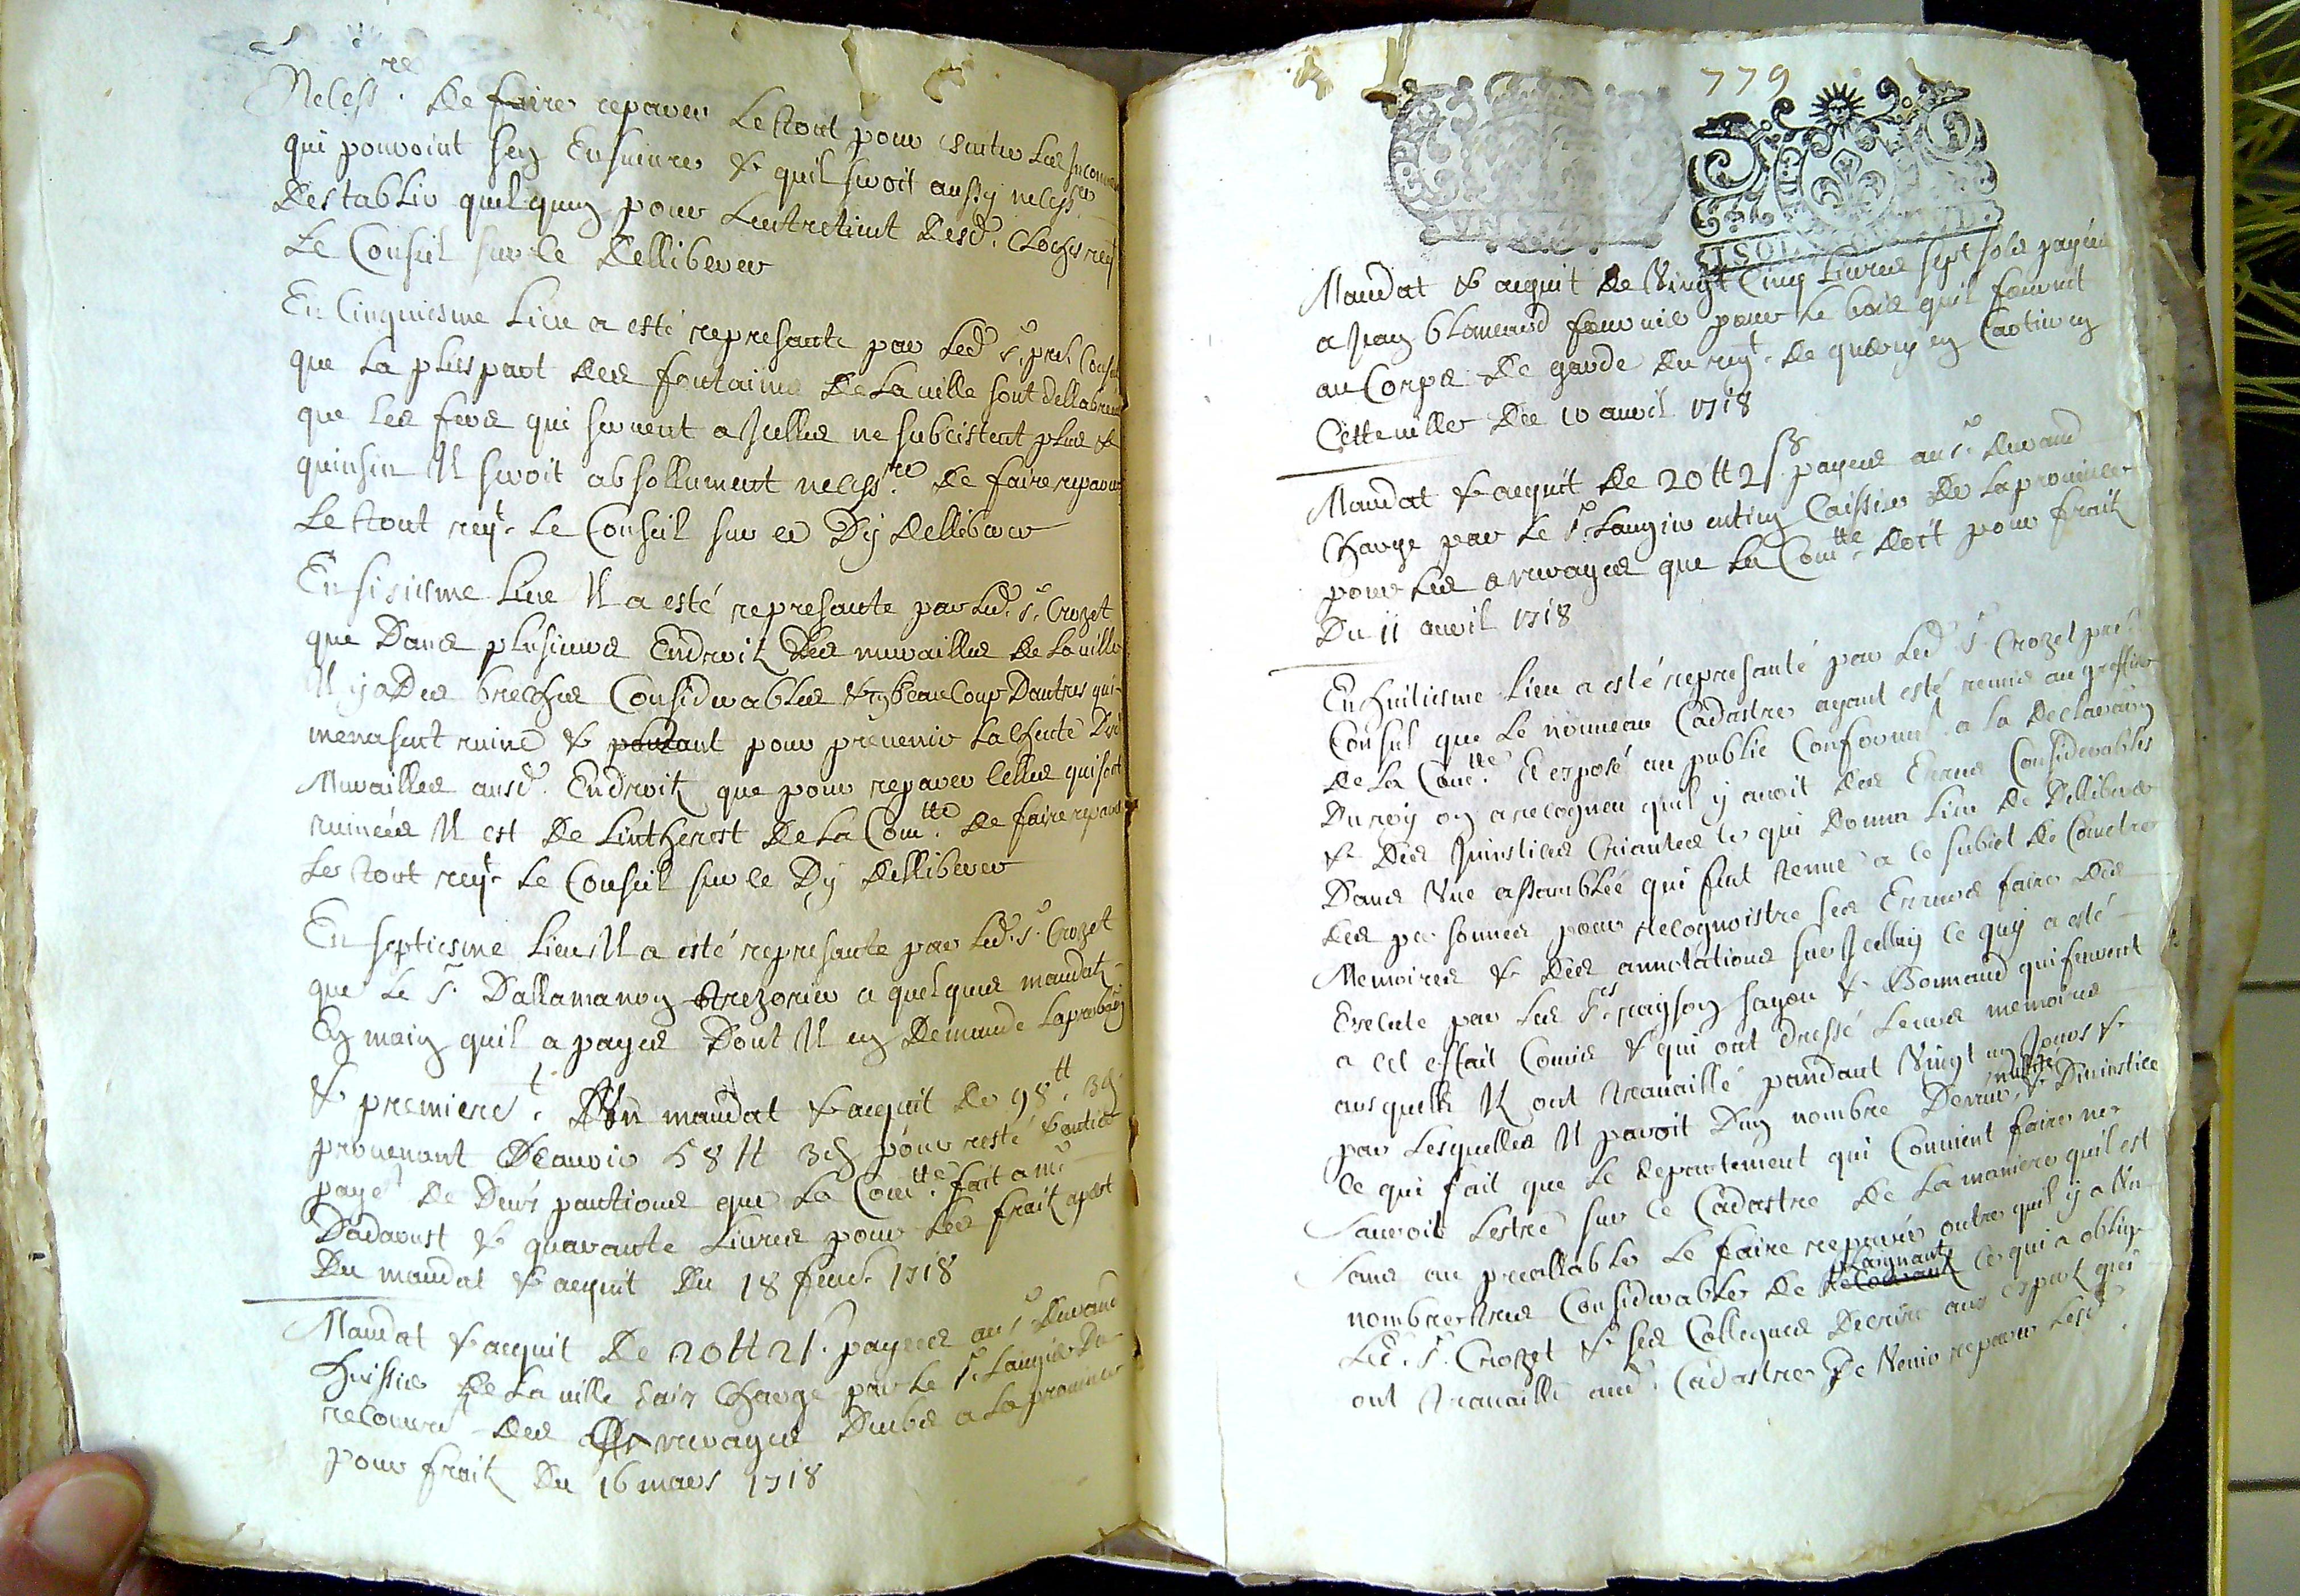 Necess.re De faire reparer Le tout pour
qui pouroint sen Ensuivre & quil seroit aussy necess.re
Destablir quelquun pour Lentretient desd. Cloches req.t
Le Conseil sur ce Delliberer
En Cinquiesme Lieu a esté represanté par Led. s.r pr.r Consul
que La pluspart des fontaines De La ville sont dellabrees
que Les fers qui servent a Icelles ne subcistent plus &
quinsin Il seroit absollument necess.re De faire reparer
Le tout req.t Le Conseil sur ce Dy Delliberer
En sisiesme Lieu Il a esté represanté par Led. s.r Crozet
que Dans plusieurs Endroitz Des murailles De La ville
Il y a Des breches Considerables & en beaucoup Dautres qui
menasent ruine & pour prevenir La Cheute Des
Murailles ausd. Endroitz que pour reparer Celles qui sont
ruinées Il est De Lintherest De La Com.tté De faire reparer
Le tout req.t Le Conseil sur ce Dy Delliberer
En septiesme Lieu Il a esté represanté par Led. s.r Crozet
que Le s.r Dallamanon trezorier a quelques mandatz
En main quil a payés Dont Il en Demande
& premierem.t Un mandat & acquit De 98 tt 3 s
provenant Scavoir 58 tt 3 s pour reste & entier
paye De Deux pantions que La Com.tté fait a m.r
Dadaoust & quarante Livres pour Les fraitz apert
Du mandat & acquit Du 18 feuv. 1718
Mandat & acquit De 20 tt 2 s. payées au s.r Durand
Huissier De La ville Daix Charge par Le s.r Laugier Du
recouvr.t des arreyrages Deubs a La province
pour fraitz Du 16 mars 1718
779
Mandat & acquit De Vingt Cinq Livres sept sols payées
a Jean blancard fournier pour Le bois quil fournit
au Corps De garde Du reg.t De quercy en Cartier en
Cette ville Du 10 avril 1718
Mandat & acquit De 20 tt 2 s. payées au s.r Durand
Charge par Le s.r Laugier Caissier De La province
pour Les arreyrages que La Com.tté Doit pour fraitz
Du 11 avril 1718
En huitiesme Lieu a esté represanté par Led. s.r Crozet pr.r
Consul que Le nouveau Cadastre ayant esté remis au greffier
De La Com.tté Et exposé au public Conform.t a La Declaration
Du roy on a recogneu quil y avoit Des Erreurs Considerables
& Des Injustices Criantes ce qui Donna Lieu De Delliberer
Dans Une assamblée qui fut tenue a ce subiet De Cometre
Des personnes pour recognoistre ses Erreurs faire Des
Memoires & Des annotations sur Icelluy ce quy a esté
Execute par Les s.rs rayson sayou & Bonnaud qui feurent
a cet effait Comis & qui ont dressé Leurs memoires
ausquels Ils ont travaillé pandant Vingt un Jours &
par Lesquelles Il paroit Dun nombre Derreurs & Dinjustice
ce qui fait que Le departement qui Convient faire ne
Sauroit Lestre sur ce Cadastre De La maniere quil est
Sans au preallable Le faire reparer outre quil y a Un
nombre tres Considerable De plaignants ce qui a oblige
Led. s.r Crozet & ses Collegues Decrire aux expertz qui
ont travaillé aud. Cadastre De Venir reparer Lesd.